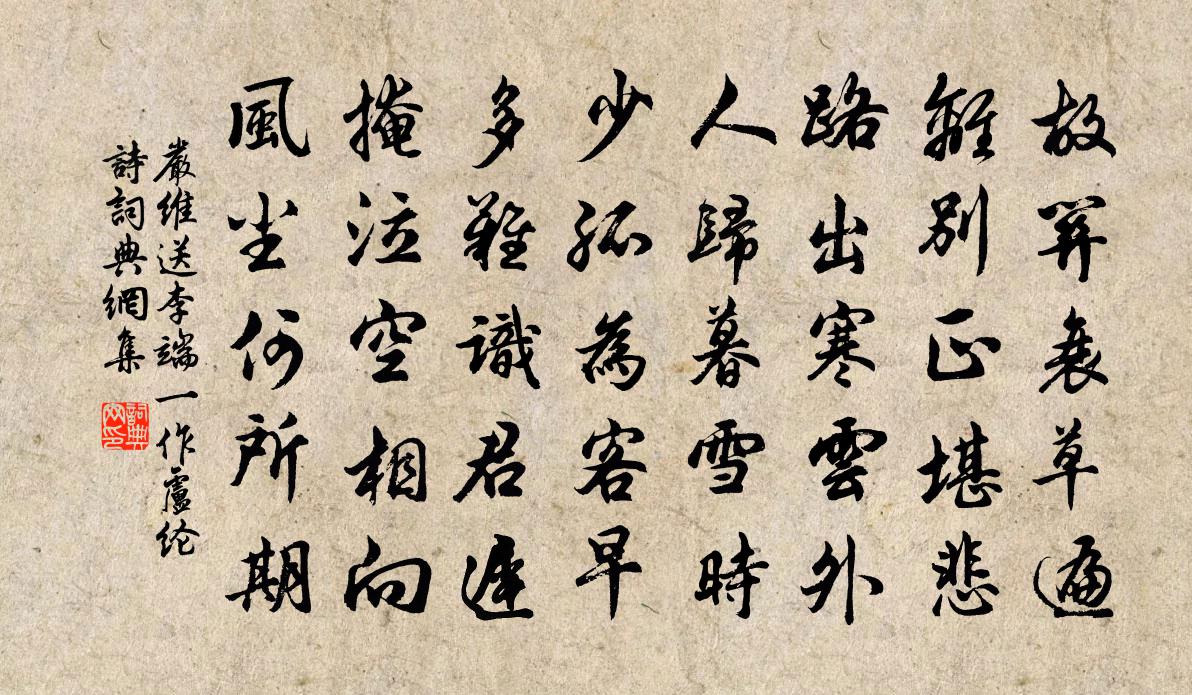 故關衰草遍
離別正堪悲
路出寒雲外
人歸暮雪時
少孤為客早
多難識君遲
掩泣空相向
風尘何所期
嚴維送李端 一作盧纶
詩詞典網集
詞典
网印